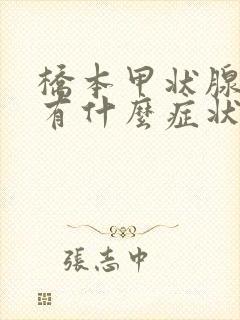 橋本甲状腺
有什麼症状
張志中